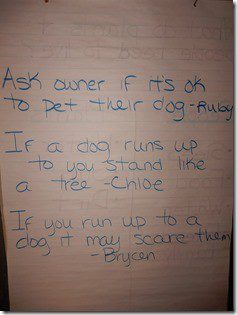 Ask owner if it's ok
to pet their dog-Ruby
If a dog runs up
to you stand like
a tree -Chloe
If you run up to a
dog it may scare them
-Brycen